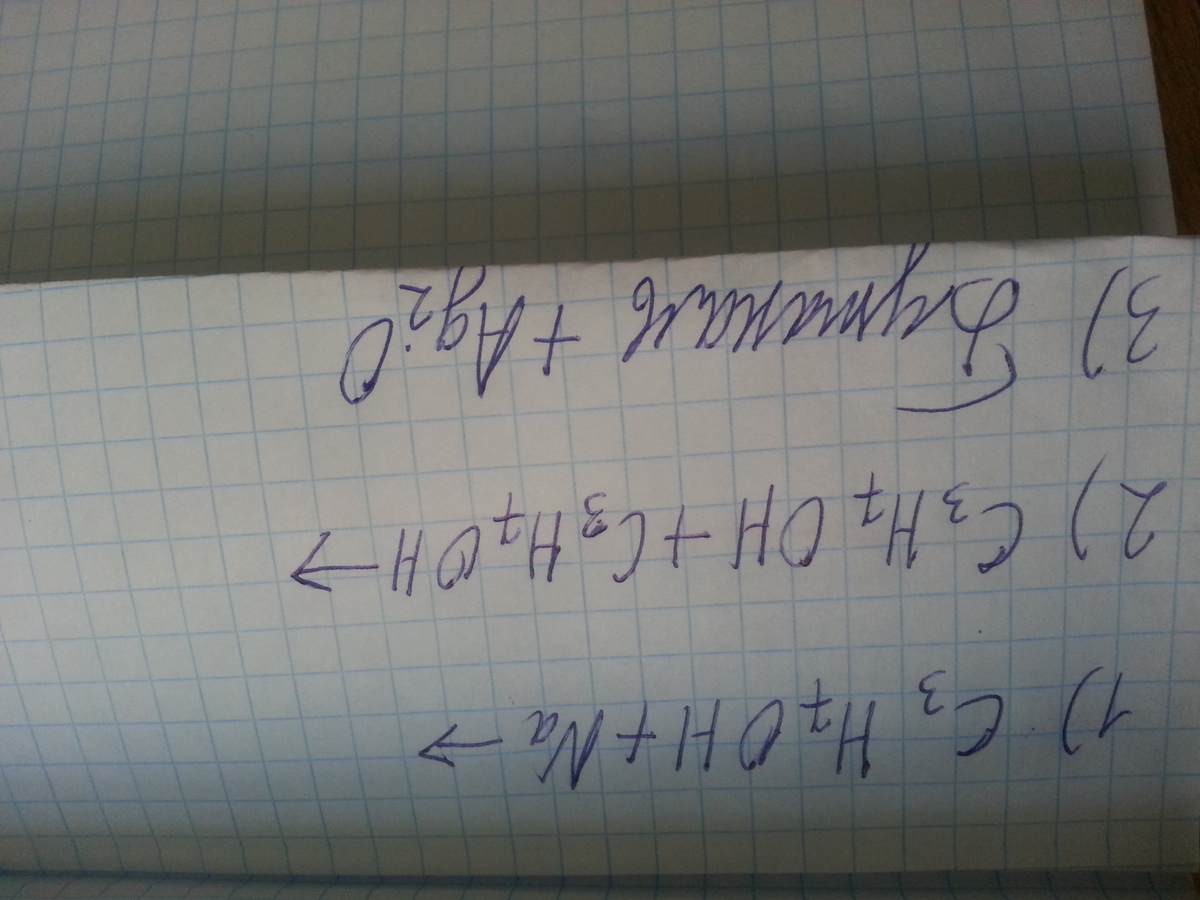 1) C₃H₇OH + Na →
2) C₃H₇OH + C₃H₇OH →
3) Бутаналь + Ag₂O